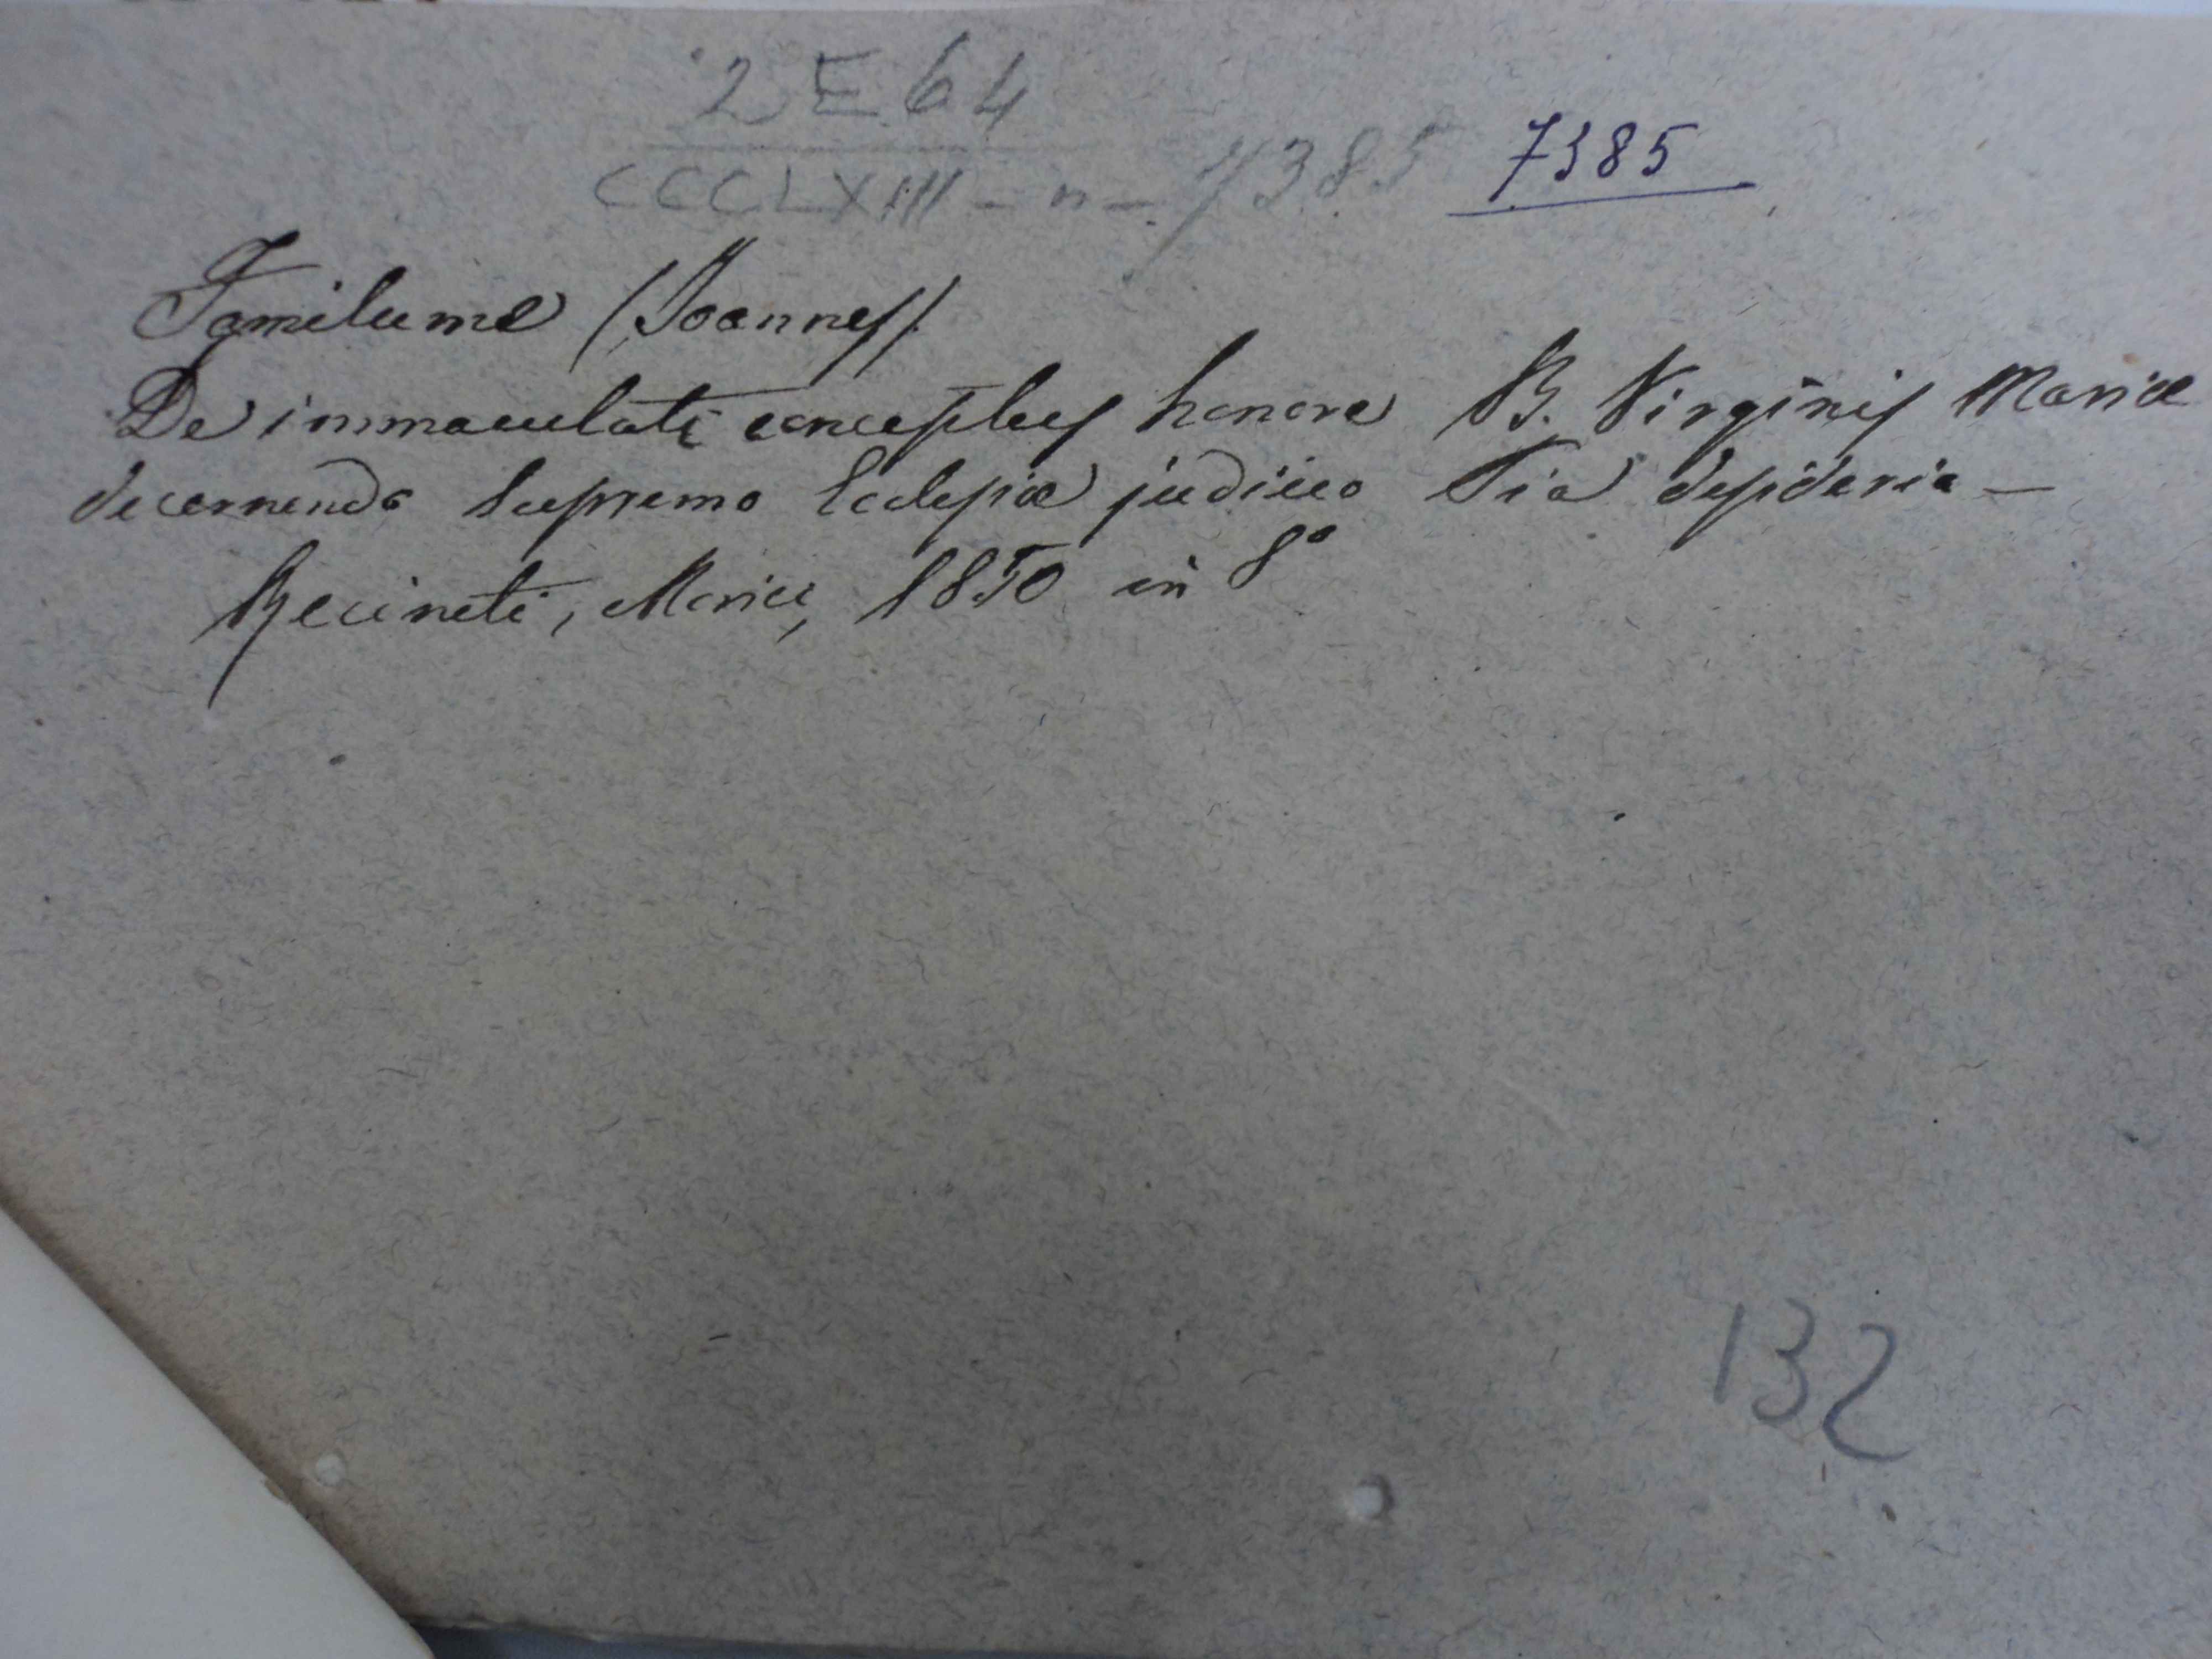 2 E 64
CCCLXIII - n - 7385 7385
Familume (Joannes)
De immaculati conceptus honore B. Virginis Mariæ
decernendo supremo Ecclesiæ judicio Pia desideria —
Recineti, Morici, 1850 in 8º
132